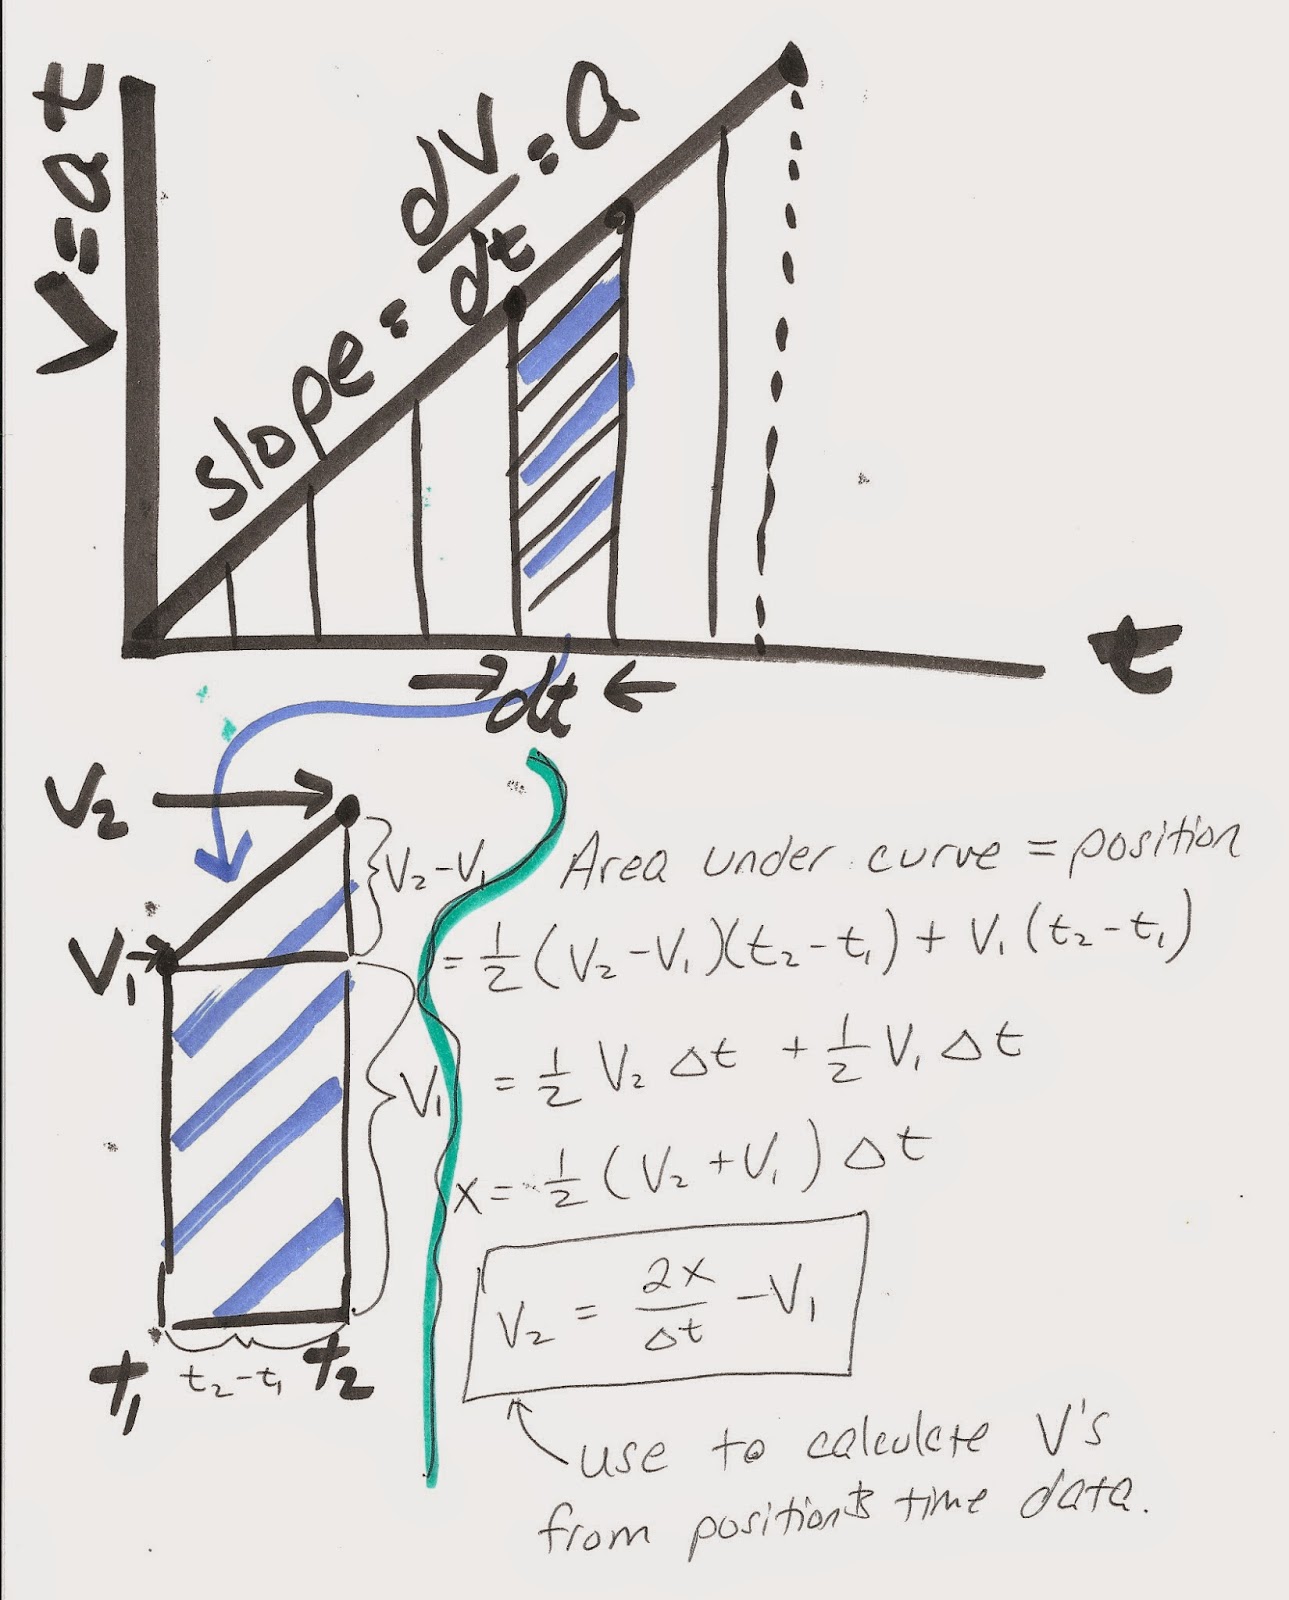 V=at
slope = dV/dt = a
t
dt
V₂
V₂-V₁
V₁
V₁
t₁
t₂-t₁
t₂
Area under curve = position
= 1/2 (V₂-V₁)(t₂-t₁) + V₁(t₂-t₁)
= 1/2 V₂ Δt + 1/2 V₁ Δt
x = 1/2 (V₂+V₁) Δt
V₂ = 2x/Δt - V₁
use to calculate V's
from position & time data.